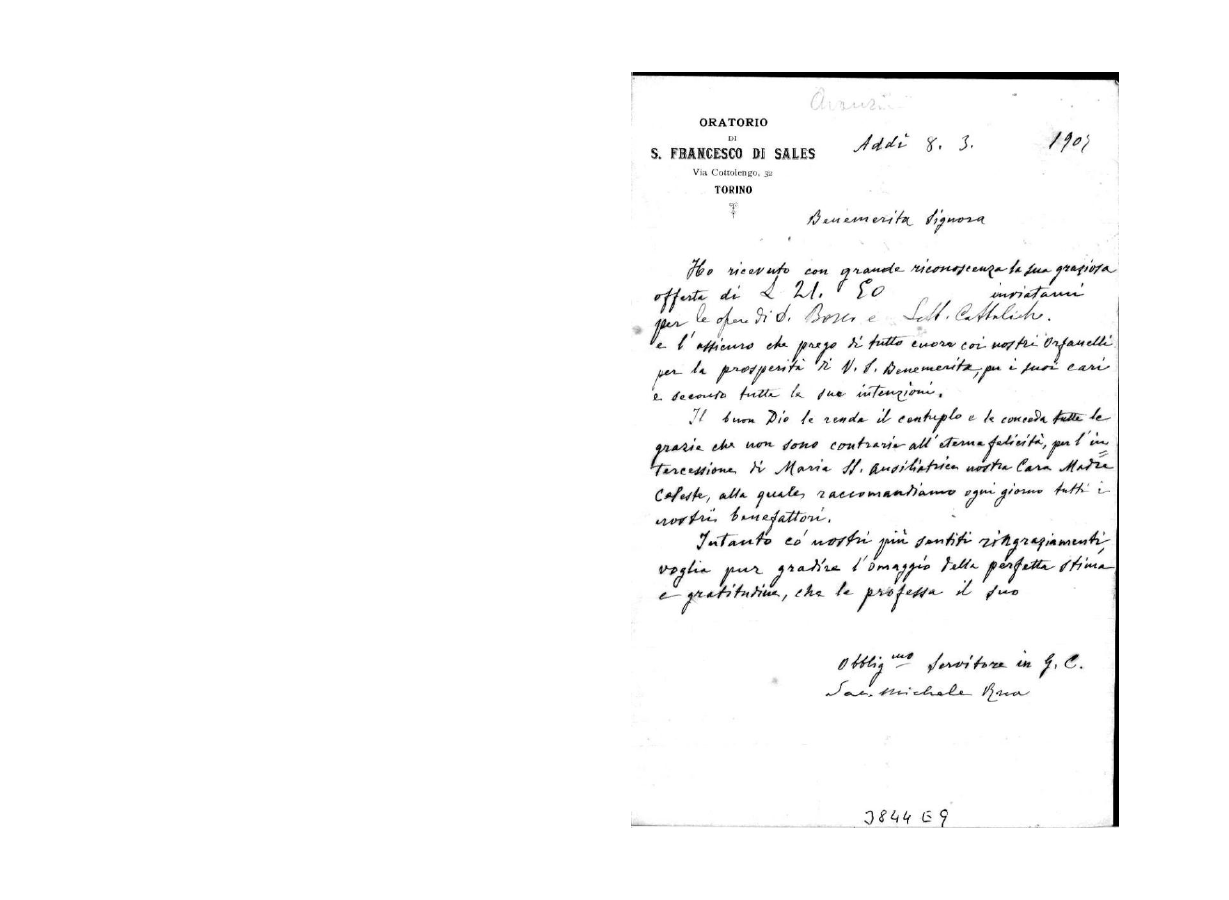 ORATORIO
DI
S. FRANCESCO DI SALES
Via Cottolengo, 32
TORINO
Addì 8. 3. 190
Benemerita Signora
Ho ricevuto con grande riconoscenza la sua graziosa
offerta di L 21. 50 inviatami
per le opere di D. Bosco e Lett. Cattoliche.
e l'assicuro che prego di tutto cuore coi nostri Orfanelli
per la prosperità di V. S. Benemerita, per i suoi cari
e secondo tutte le sue intenzioni.
Il buon Dio le renda il centuplo e le conceda tutte le
grazie che non sono contrarie all'eterna felicità, per l'in
tercessione di Maria SS. Ausiliatrice nostra Cara Madre
Celeste, alla quale raccomandiamo ogni giorno tutti i
nostri benefattori.
Intanto co' nostri più sentiti ringraziamenti
voglia pur gradire l'omaggio della perfetta stima
e gratitudine, che le professa il suo
Obblig.mo Servitore in G. C.
Sac. Michele Rua
3844 E 9